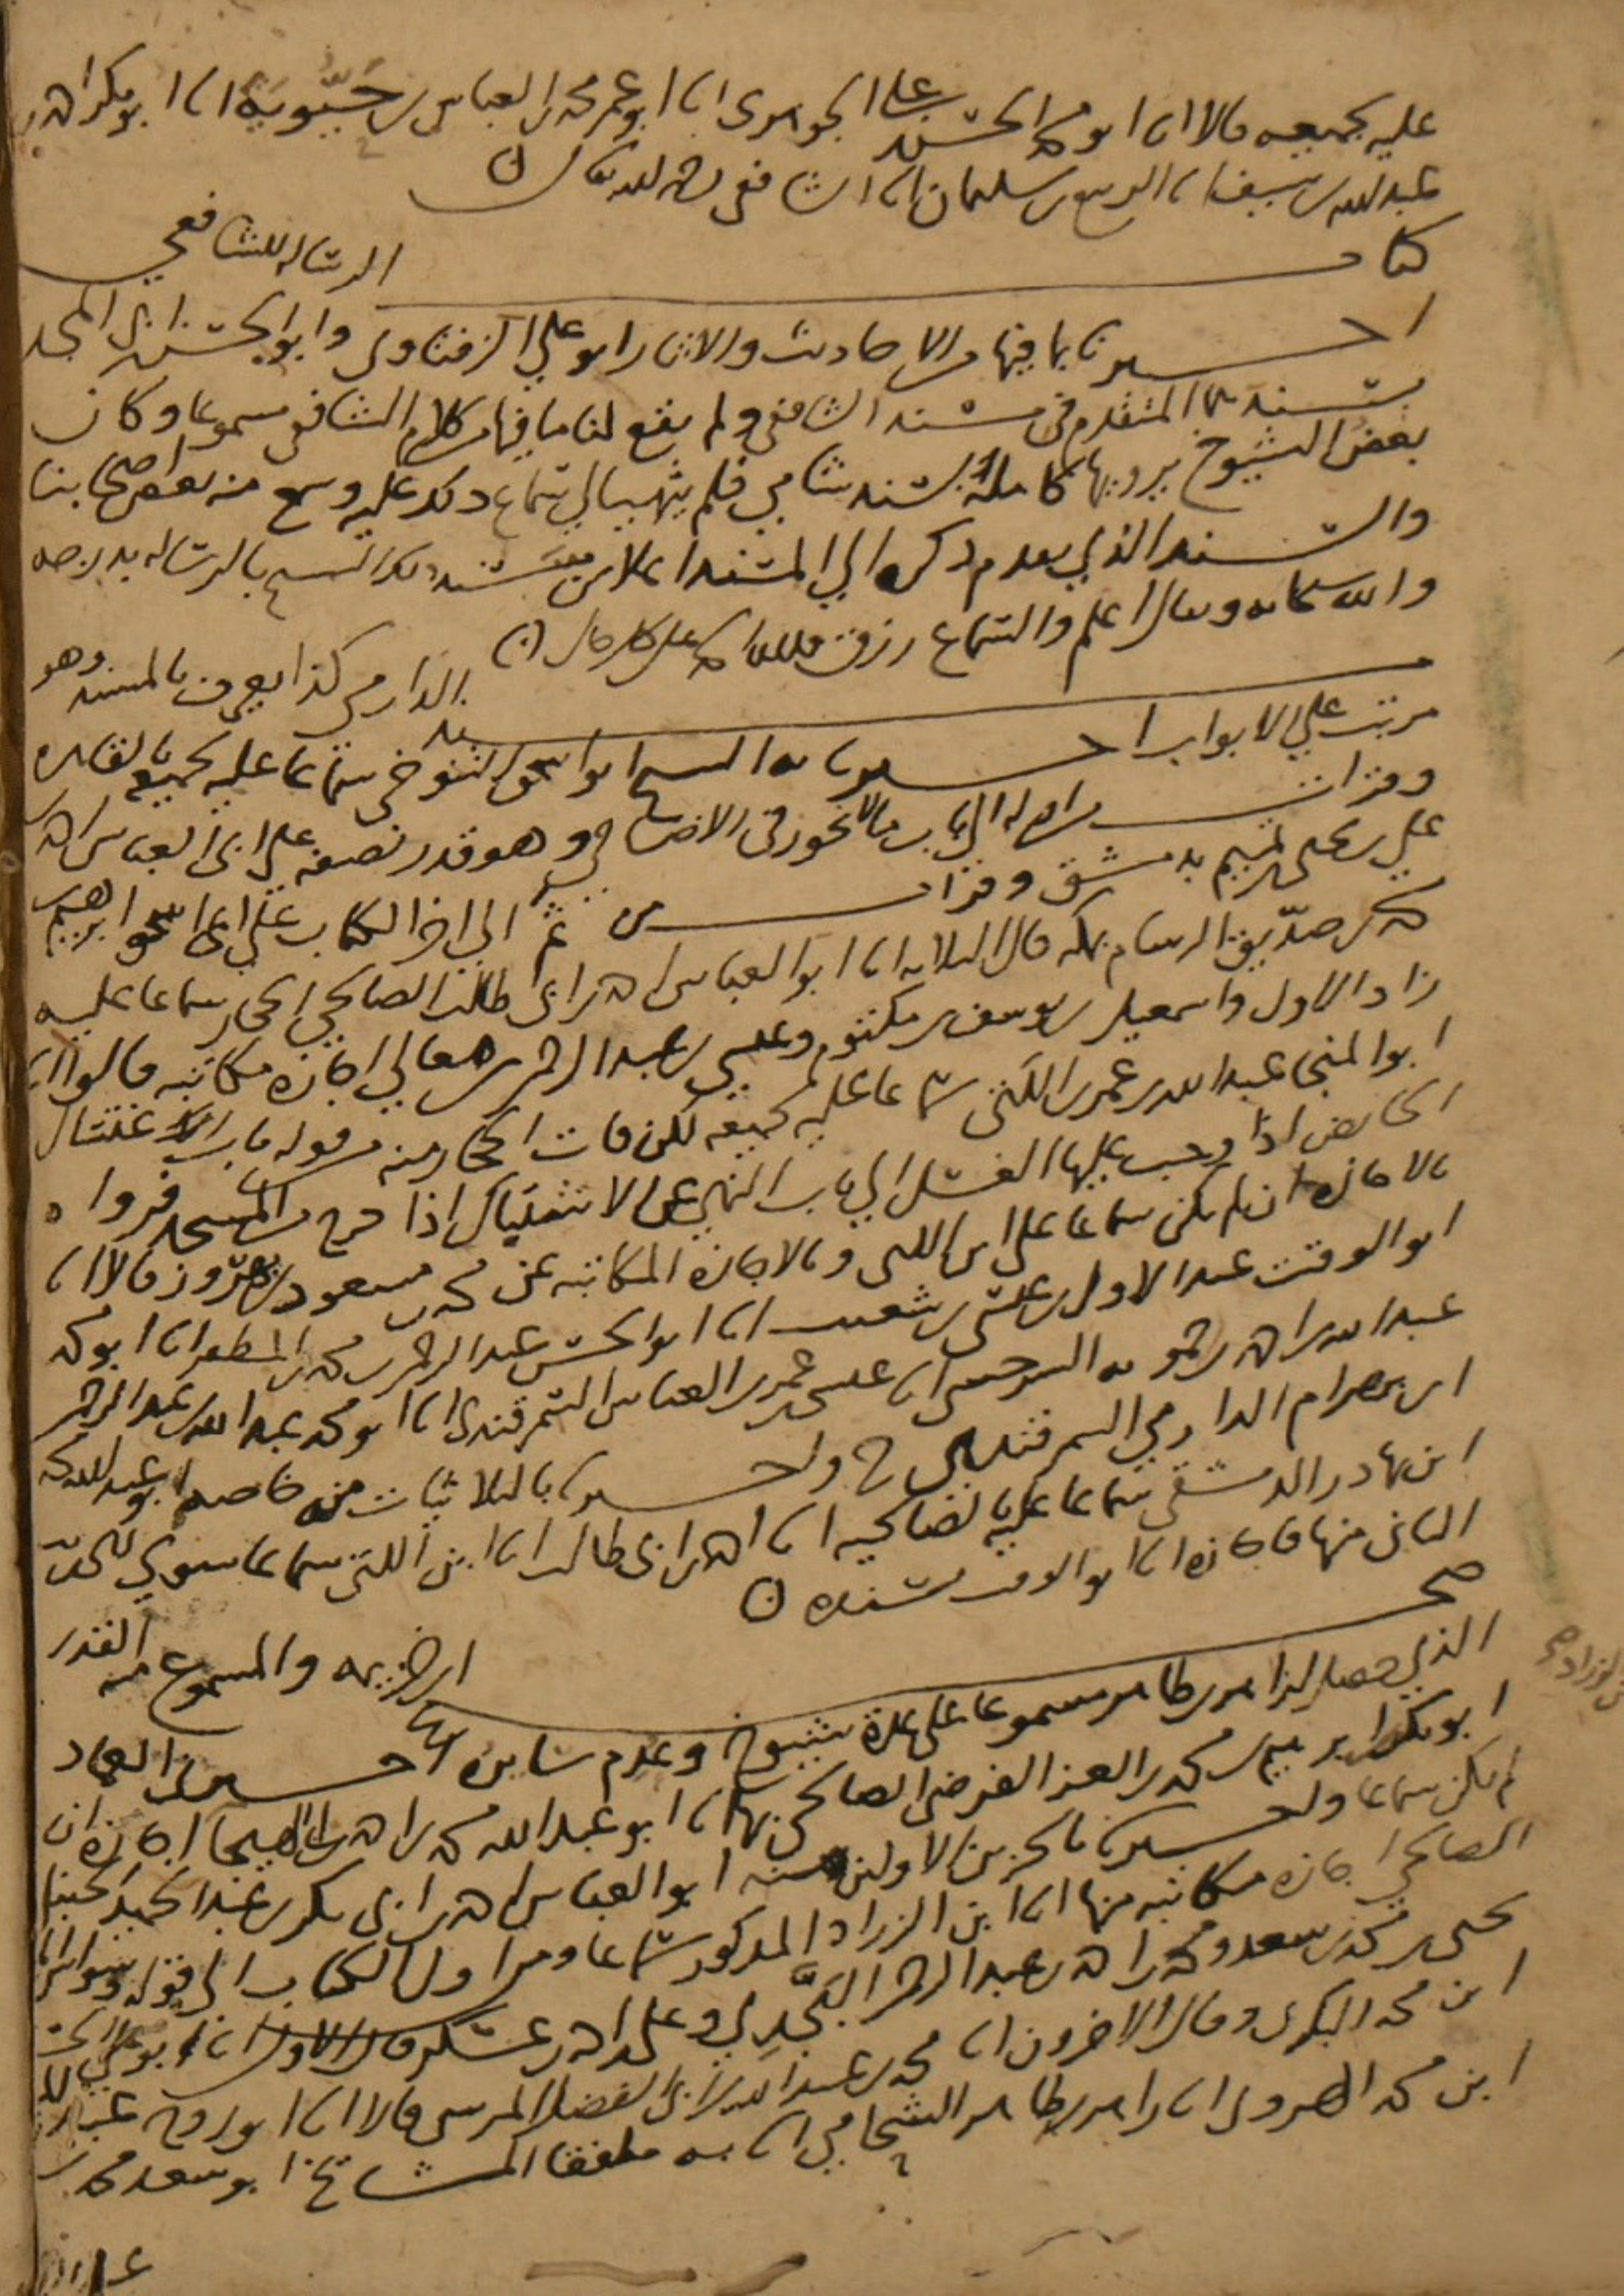 عليه بجميعه قالا انا ابو محمد الحسن بن علي الجوهري انا ابو عمر محمد بن العباس بن حيويه انا ابو بكر احمد بن
عبد الله بن سيف انا الربيع بن سليمان انا الشافعي رحمه الله تعالى
كتاب الرساله للشافعي
اخبرنا بما فيها من الاحاديث والاثار ابو علي الزفتاوي وابو الحسن بن ابي المجد
بسنديهما المتقدم في مسند الشافعي ولم يقع لنا ما فيها من كلام الشافعي مسموعا وكان
بعض الشيوخ يرويها كاملة بسند شامي فلم يتهيا لي سماع ذلك عليه وسمع منه بعض اصحابنا
والسند الذي تقدم ذكره الي المسند اعلا من سند ذلك الشيخ بالرساله بدرجه
والله سبحانه وتعالى اعلم والسماع رزق فلله الحمد على كل حال
مسند الدارمي كذا يعرف بالمسند وهو
مرتب علي الابواب اخبرنا به الشيخ ابو اسحق التنوخي سماعا عليه لجميعه بالقاهره
وقرات من اوله الي باب ما لا يجوز في الاضاحي وهو قدر نصفه علي ابي العباس احمد بن
علي بن يحيى بن تميم بدمشق وقرات من ثم الي اخر الكتاب علي ابي اسحق ابراهيم بن
محمد بن صديق الرسام بمكه قال الثلاثه انا ابو العباس احمد بن ابي طالب الصالحي الحجار سماعا عليه
زاد الاول واسمعيل بن يوسف بن مكتوم وعيسى بن عبد الرحمن بن معالي اجازه مكاتبه قالوا انا
ابو المنجى عبد الله بن عمر بن اللتي سماعا عليه لجميعه لكن فات الحجار منه من قوله باب الاغتسال
الحائض اذا وجب عليها الغسل الي باب النهي عن الاستقبال اذا خرج من المسجد فرواه
بالاجازه ان لم يكن سماعا على ابن اللتي وبالاجازه المكاتبه عن محمد بن مسعود بن بهروز قالا انا
ابو الوقت عبد الاول بن عيسى بن شعيب انا ابو الحسن عبد الرحمن بن محمد بن المظفر انا ابو محمد
عبد الله بن احمد بن حمويه السرخسي انا عيسى بن عمر بن العباس السمرقندي انا ابو محمد عبد الله بن عبد الرحمن
ابن بهرام الدارمي السمرقندي ح واخبرنا بالثلاثيات منه خاصه ابو عبد الله محمد
ابن بهادر الدمشقي سماعا عليه بالصالحيه انا احمد بن ابي طالب انا ابن اللتي سماعا سوى الحديث
الثاني منها فاجازه انا ابو الوقت بسنده
صحيح ابن خزيمه والمسموع منه القدر
الذي حصل لزاهر بن طاهر مسموعا على عدة شيوخ وعدم سائره اخبرنا العماد
ابو بكر بن ابراهيم بن محمد بن العز الفرضي الصالحي بها انا ابو عبد الله محمد بن احمد بن ابي الهيجا اجازه ان
لم يكن سماعا واخبرنا بالجزين الاولين منه ابو العباس احمد بن ابي بكر بن عبد الحميد الحنبلي
الصالحي اجازه مكاتبه منها انا ابن الزراد المذكور سماعا ومن اول الكتاب الي قوله
يحيى بن محمد بن سعد ومحمد بن احمد بن عبد الرحمن البجدي وعلي بن احمد بن عسكر قال الاول انا ابو علي الحسن
ابن محمد البكري وقال الاخرون انا محمد بن عبد الله بن ابي الفضل المرسي قالا انا ابو روح عبد المعز
ابن محمد الهروي انا زاهر بن طاهر الشحامي انا به ملفقا المشايخ ابو سعد محمد بن